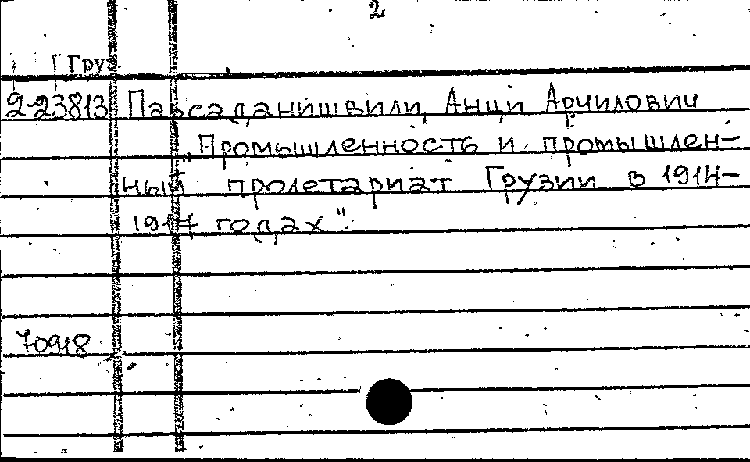 2
Груз
2-23813 Парсаданишвили, Анци Арчилович
„Промышленность и промышлен-
ный пролетариат Грузии в 1914-
1917 годах".
70918